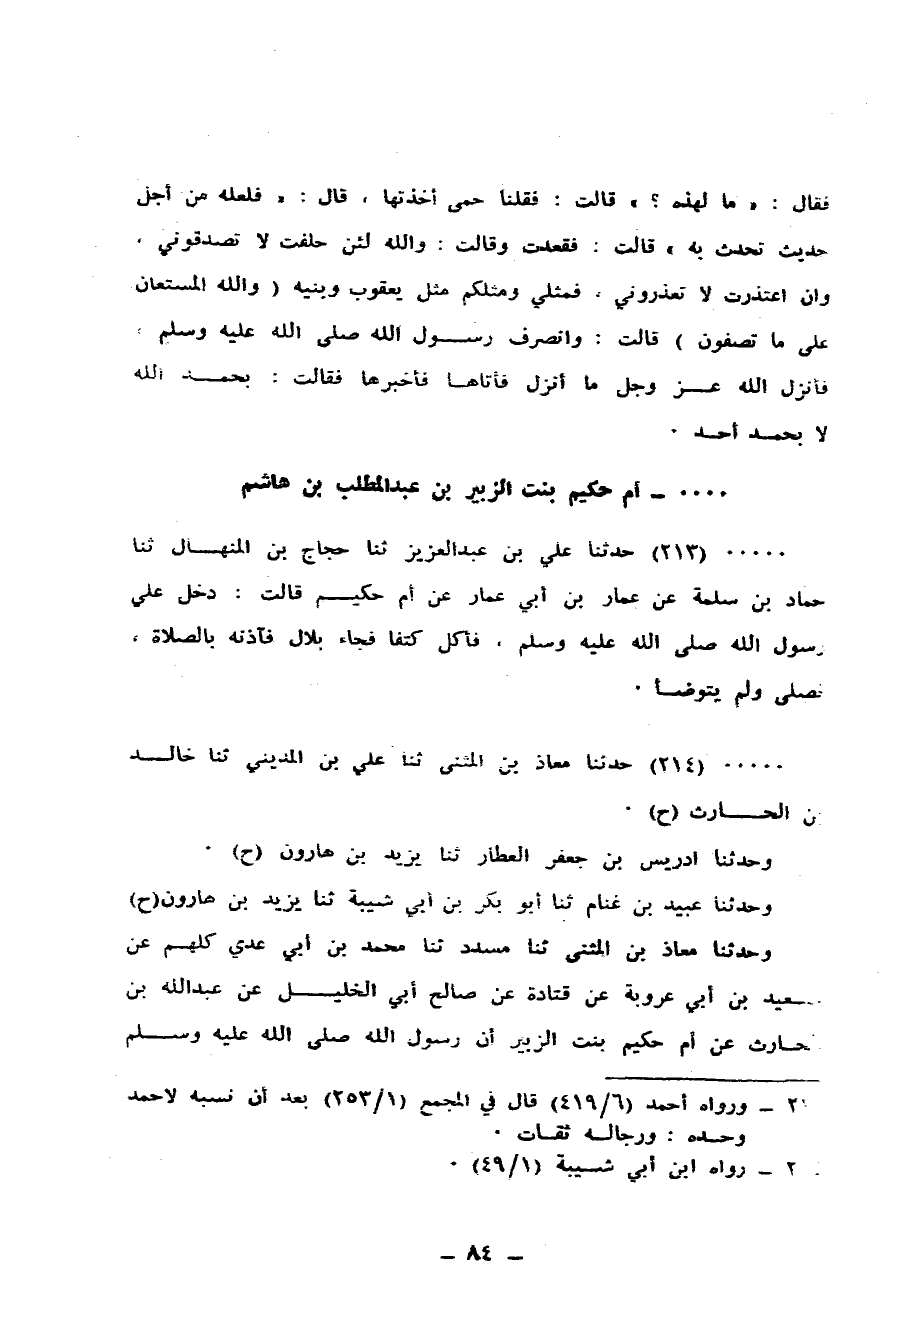 فقال : « ما لهذه ؟ » قالت : فقلنا حمى أخذتها ، قال : « فلعله من أجل
حديث تحدث به » قالت : فقعدت وقالت : والله لئن حلفت لا تصدقوني ،
وان اعتذرت لا تعذروني ، فمثلي ومثلكم مثل يعقوب وبنيه ( والله المستعان
على ما تصفون ) قالت : وانصرف رسول الله صلى الله عليه وسلم ،
فأنزل الله عز وجل ما أنزل فأتاها فأخبرها فقالت : بحمد الله
لا بحمد أحد ٠
٠٠٠٠ ـ أم حكيم بنت الزبير بن عبدالمطلب بن هاشم
٠٠٠٠٠ (٢١٣) حدثنا علي بن عبدالعزيز ثنا حجاج بن المنهال ثنا
حماد بن سلمة عن عمار بن أبي عمار عن أم حكيم قالت : دخل علي
رسول الله صلى الله عليه وسلم ، فأكل كتفا فجاء بلال فآذنه بالصلاة ،
فصلى ولم يتوضأ ٠
٠٠٠٠٠ (٢١٤) حدثنا معاذ بن المثنى ثنا علي بن المديني ثنا خالد
بن الحارث (ح) ٠
وحدثنا ادريس بن جعفر العطار ثنا يزيد بن هارون (ح) ٠
وحدثنا عبيد بن غنام ثنا أبو بكر بن أبي شيبة ثنا يزيد بن هارون(ح)
وحدثنا معاذ بن المثنى ثنا مسدد ثنا محمد بن أبي عدي كلهم عن
سعيد بن أبي عروبة عن قتادة عن صالح أبي الخليل عن عبدالله بن
الحارث عن أم حكيم بنت الزبير أن رسول الله صلى الله عليه وسلم
٢ ـ ورواه أحمد (٤١٩/٦) قال في المجمع (٢٥٣/١) بعد أن نسبه لاحمد
وحده : ورجاله ثقات ٠
٢ ـ رواه ابن أبي شيبة (٤٩/١) ٠
ـ ٨٤ ـ